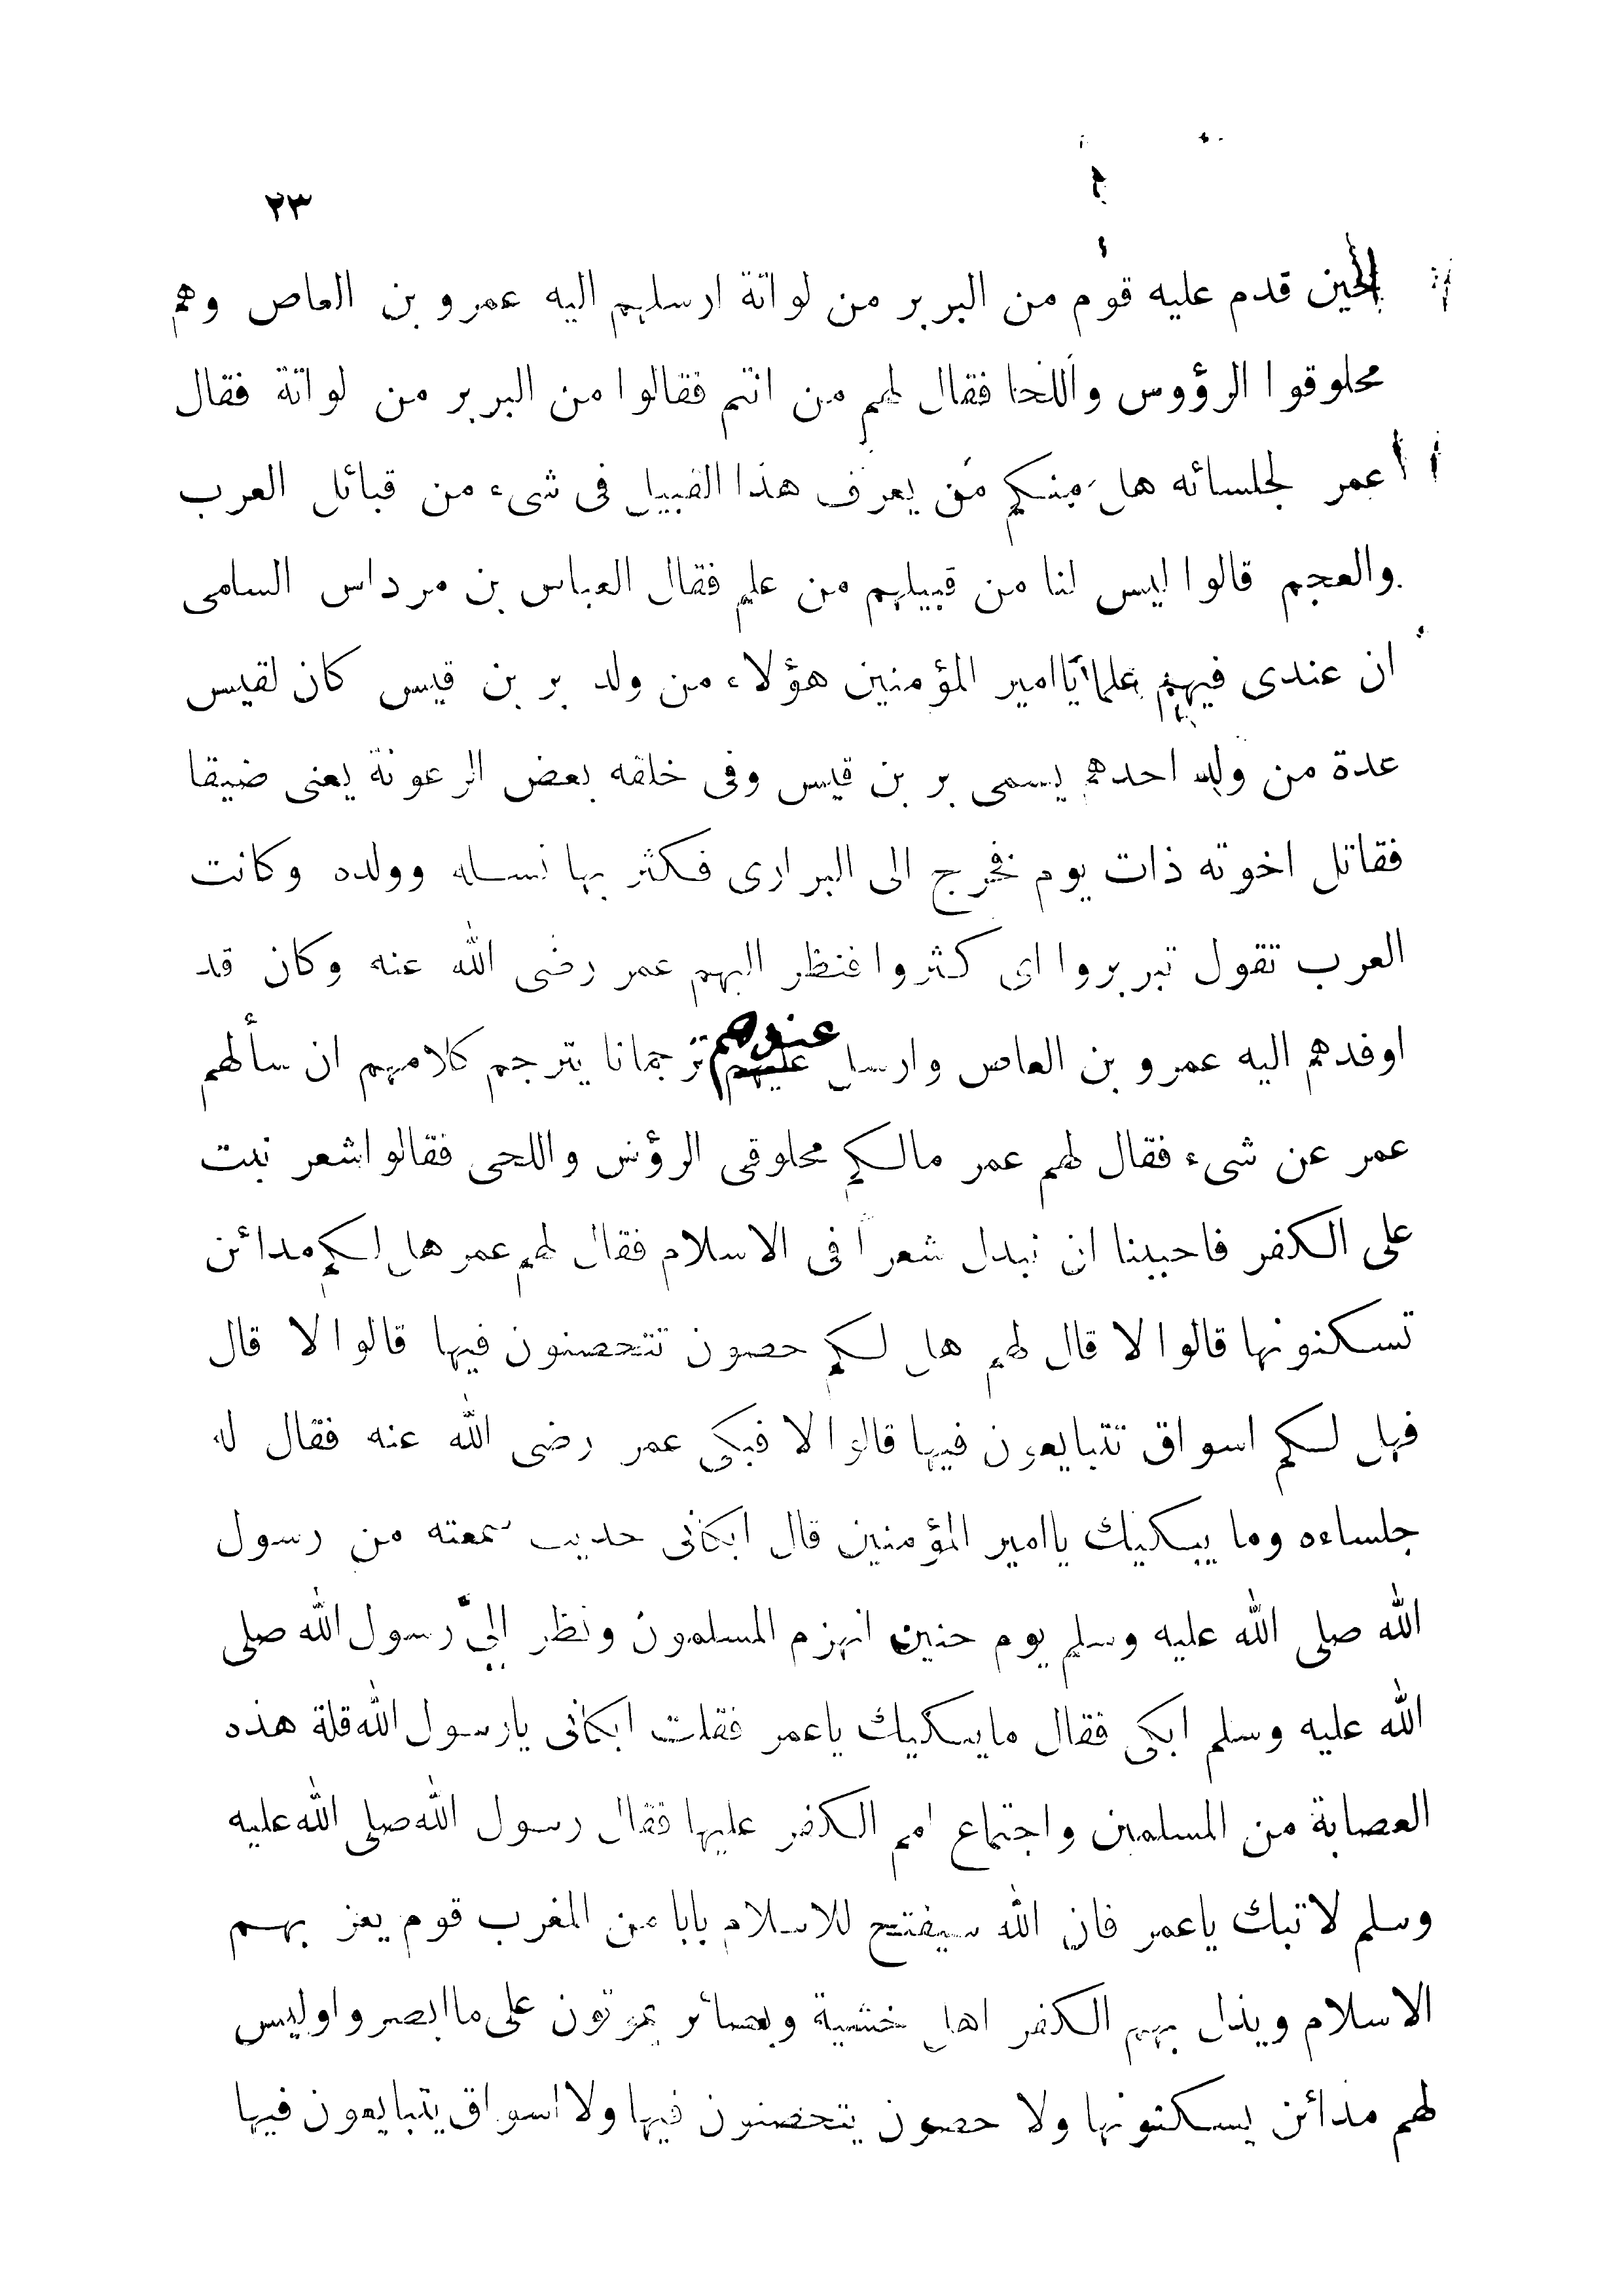 ٢٣
الحين قدم عليه قوم من البربر من لواتة ارسلهم اليه عمرو بن العاص وهم
محلوقوا الرؤوس واللحا فقال لهم من انتم فقالوا من البربر من لواتة فقال
عمر لجلسائه هل منكم من يعرف هذا القبيل فى شىء من قبائل العرب
والعجم قالوا ليس لنا من قبيلهم من علم فقال العباس بن مرداس السامى
ان عندى فيهم علما ياامير المؤمنين هؤلاء من ولد بر بن قيس كان لقيس
عدة من ولد احدهم يسمى بر بن قيس وفى خلقه بعض الرعونة يعنى ضيقا
فقاتل اخوته ذات يوم فخرج الى البرارى فكثر بها نسله وولده وكانت
العرب تقول تبربروا اى كثروا فنظر اليهم عمر رضى الله عنه وكان قد
اوفدهم اليه عمرو بن العاص وارسل عندهم ترجمانا يترجم كلامهم ان سألهم
عمر عن شىء فقال لهم عمر مالكم محلوقى الرؤس واللحى فقالوا شعر نبت
على الكفر فاحببنا ان نبدل شعرا فى الاسلام فقال لهم عمر هل لكم مدائن
تسكنونها قالوا لا قال لهم هل لكم حصون تتحصنون فيها قالوا لا قال
فهل لكم اسواق تتبايعون فيها قالوا لا فبكى عمر رضى الله عنه فقال له
جلساءه وما يبكيك ياامير المؤمنين قال ابكانى حديث سمعته من رسول
الله صلى الله عليه وسلم يوم حنين انهزم المسلمون ونظر الىّ رسول الله صلى
الله عليه وسلم ابكى فقال مايبكيك ياعمر فقلت ابكانى يارسول الله قلة هذه
العصابة من المسلمين واجتماع امم الكفر عليها فقال رسول الله صلى الله عليه
وسلم لا تبك ياعمر فان الله سيفتح للاسلام بابا من المغرب قوم يعز بهم
الاسلام ويذل بهم الكفر اهل خشية وبصائر يموتون على ما ابصروا وليس
لهم مدائن يسكنونها ولا حصون يتحصنون فيها ولا اسواق يتبايعون فيها